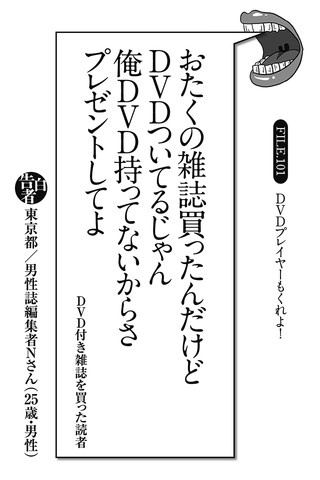 FILE.101
DVDプレイヤーもくれよ！
おたくの雑誌買ったんだけど
DVDついてるじゃん
俺DVD持ってないからさ
プレゼントしてよ
DVD付き雑誌を買った読者
告白者
東京都／男性誌編集者Nさん（25歳・男性）